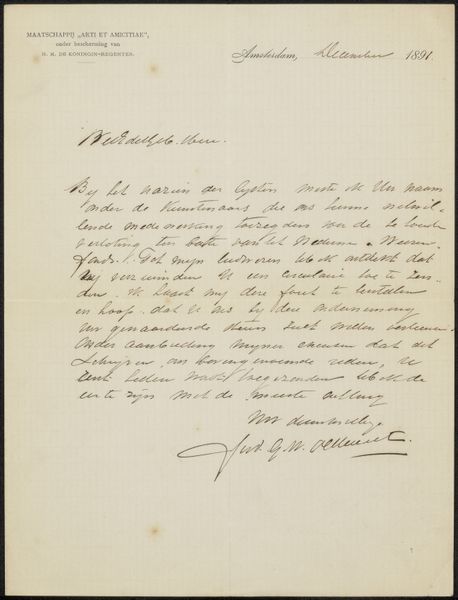 MAATSCHAPPIJ „ARTI ET AMICITIAE",
onder bescherming van
H. M. DE KONINGIN-REGENTES.
Amsterdam, December 1891.
WelEdelGeb. Heer.
Bij het nazien der lijsten miste ik Uw naam
onder de Kunstenaars die ons hunne
medewerking toezegden voor de te houden
verloting ten bate van het Weduwen & Weezen
fonds. Tot mijn leedwezen heb ik ontdekt dat
wij verzuimden U een circulaire toe te zen-
den. Ik haast mij deze fout te herstellen
en hoop dat U ons bij deze onderneming
Uw gewaardeerde steun zult willen verleenen.
Onder aanbieding mijner excuses dat dit
schrijven, om bovengenoemde reden, U
eerst heden wordt toegezonden heb ik de
eer te zijn met de meeste achting
Uw dienstwillige